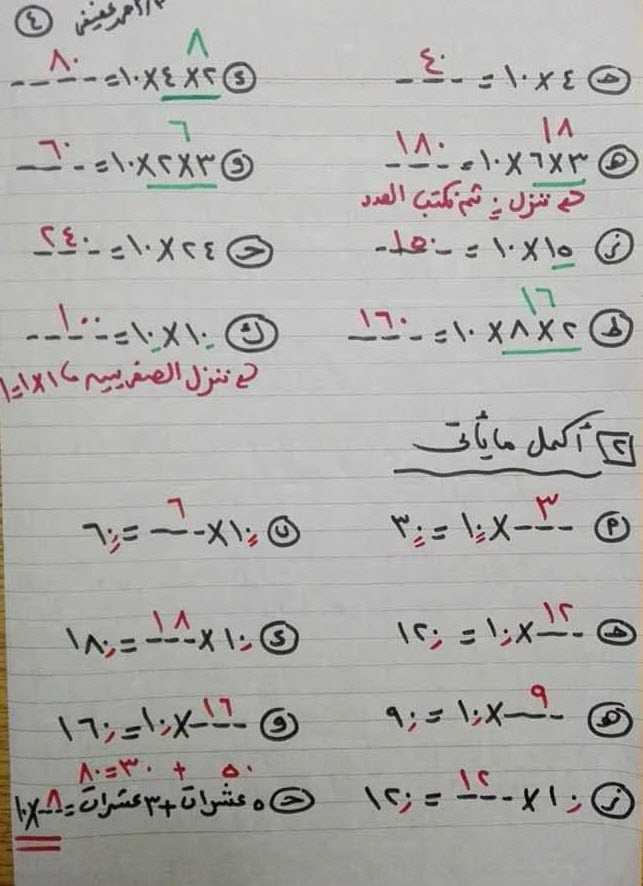 أحمد عفيفي ٤
ج ٤ × ١٠ = ٤٠
د ٢ × ٤ × ١٠ = ٨٠
٨
هـ ٣ × ٦ × ١٠ = ١٨٠
١٨
و ٣ × ٢ × ١٠ = ٦٠
٦
ننزل ٠ ثم نكتب العدد
ز ١٥ × ١٠ = ١٥٠
ح ٢٤ × ١٠ = ٢٤٠
ط ٢ × ٨ × ١٠ = ١٦٠
١٦
ك ١٠ × ١٠ = ١٠٠
ننزل الصفريين ١ × ١ = ١
٢ أكمل ما يأتى
٣ × ١٠ = ٣٠
ب ١٠ × ٦ = ٦٠
ج ١٢ × ١٠ = ١٢٠
د ١٠ × ١٨ = ١٨٠
هـ ٩ × ١٠ = ٩٠
و ١٦ × ١٠ = ١٦٠
ز ١٠ × ١٢ = ١٢٠
٥٠ + ٣٠ = ٨٠
ح ٥ عشرات + ٣ عشرات = ٨ × ١٠